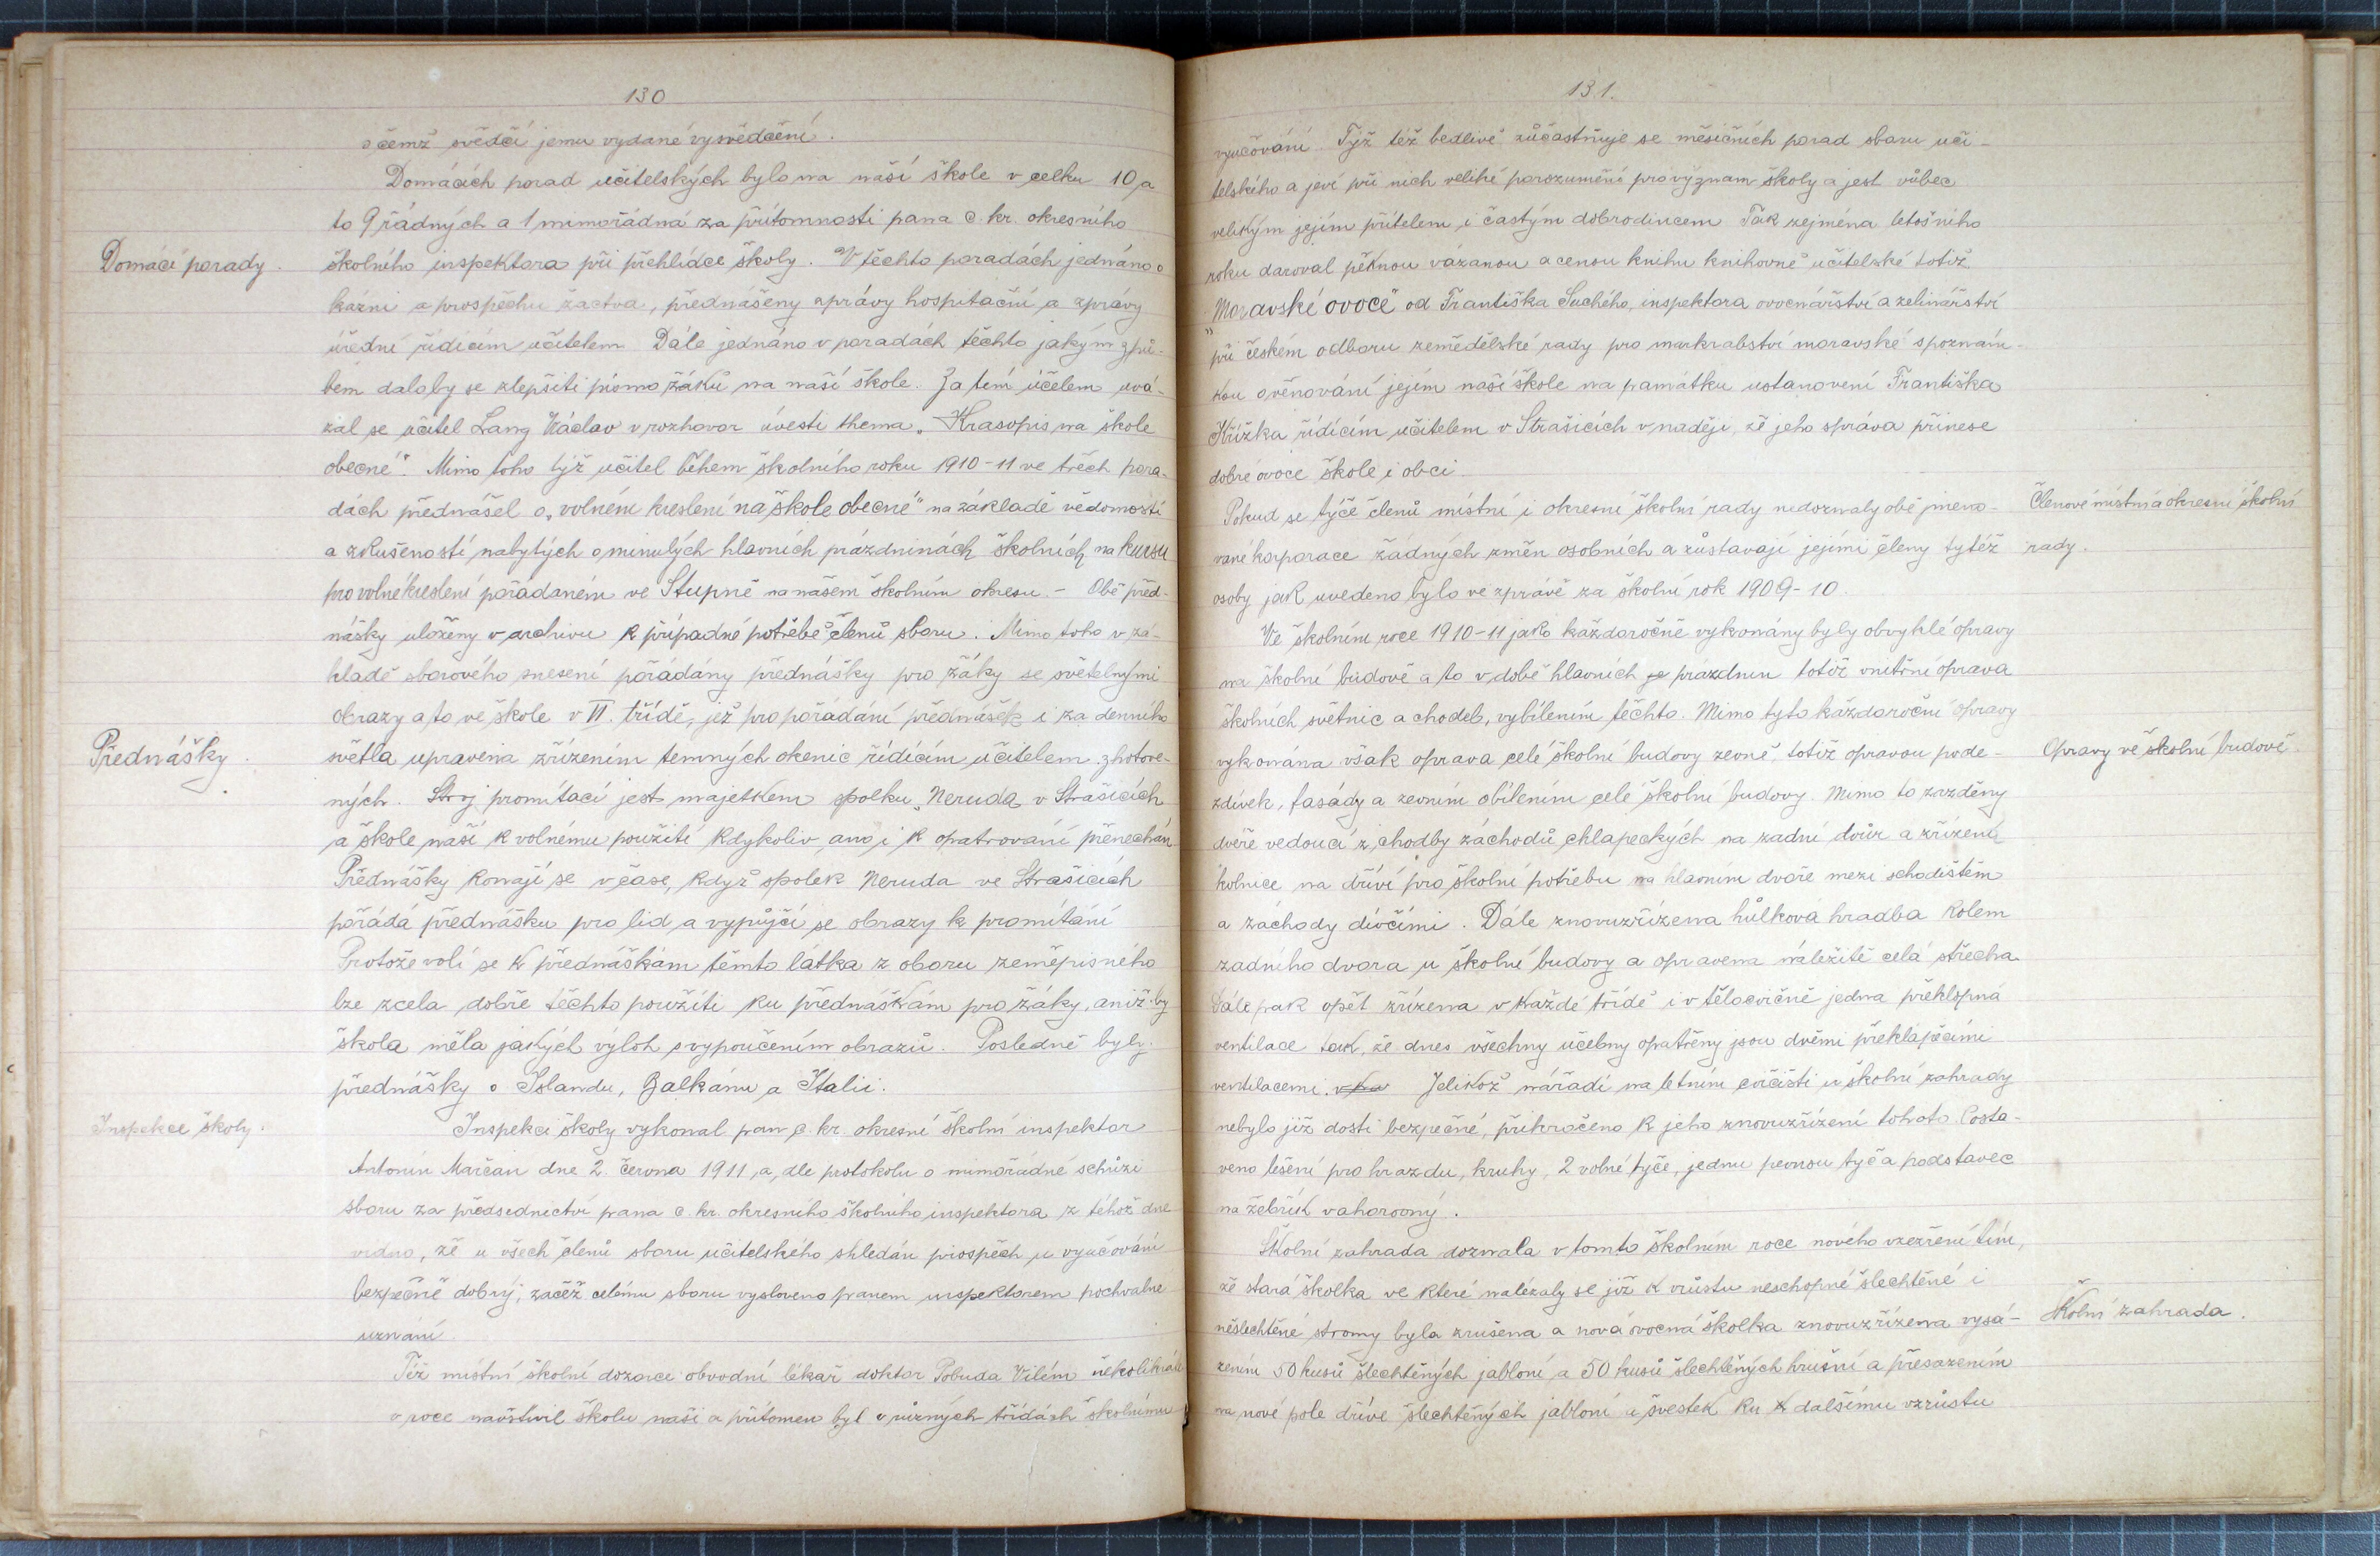 130
o čemž svědčí jemu vydané vysvědčení.
Domácích porad učitelských bylo na naší škole v celku 10, a
to 9 řádných a 1 mimořádná za přítomnosti pana c. kr. okresního
Domácí porady.
školního inspektora při přehlídce školy. V těchto poradách jednáno o
kázni a prospěchu žactva, přednášeny zprávy hospitační a zprávy
úřední řídícím učitelem. Dále jednáno v poradách těchto jakým způ-
bem dalo by se zlepšiti písmo žáků na naší škole. Za tím účelem uvá-
zal se učitel Lang Václav v rozhovor úvesti thema „Krasopis na škole
obecné". Mimo toho týž učitel během školního roku 1910-11 ve třech pora-
dách přednášel o „volném kreslení na škole obecné" na základě vědomostí
a zkušeností nabytých o minulých hlavních prázdninách školních na kursu
pro volné kreslení pořádaném ve Stupně na našem školním okresu. - Obě před-
nášky uloženy v archivu k případné potřebě členů sboru. Mimo toho v zá-
kladě sborového snesení pořádány přednášky pro žáky se světelnými
obrazy a to ve škole v VI. třídě, jež pro pořádání přednášek i za denního
Přednášky.
světla upravena zřízením temných okenic řídícím učitelem zhotove-
ných. Stroj promítací jest majetkem spolku „Neruda v Strašicích
a škole naší k volnému použití kdykoliv, ano i k opatrování přenechán
Přednášky konají se v čase, když spolek Neruda ve Strašicích
pořádá přednášku pro lid a vypůjčí se obrazy k promítání
Protože volí se k přednáškám těmto látka z oboru zeměpisného
lze zcela dobře těchto použíti ku přednáškám pro žáky, aniž by
škola měla jakých výloh s vypoučením obrazů. Posledně byly
přednášky o Islandu, Balkánu a Itálii.
Inspekce školy.
Inspekci školy vykonal pan c. kr. okresní školní inspektor
Antonín Marčan dne 2. června 1911, a, dle protokolu o mimořádné schůzi
sboru za předsednictví pana c. kr. okresního školního inspektora z téhož dne
vidno, že u všech členů sboru učitelského shledán prospěch u vyučování
bezpečně dobrý; začež celému sboru vysloveno panem inspektorem pochvalné
uznání.
Též místní školní dozorce obvodní lékař doktor Pobuda Vilém několikrát
v roce navštívil školu naši a přítomen byl v různých třídách školnímu
131.
vyučování. Týž též bedlivě zůčastňuje se měsíčních porad sboru uči-
telského a jeví při nich veliké porozumění pro význam školy a jest vůbec
velikým jejím přítelem i častým dobrodincem. Tak zejména letošního
roku daroval pěknou vázanou a cenou knihu knihovně učitelské totiž
„Moravské ovoce" od Františka Suchého, inspektora ovocnářství a zelinářství
při českém odboru zemědělské rady pro markrabství moravské s poznám-
kou o věnování jejím naší škole na památku ustanovení Františka
Křížka řídícím učitelem v Strašicích v naději, že jeho správa přinese
dobré ovoce škole i obci.
Pokud se týče členů místní i okresní školní rady nedoznaly obě jmeno-
Členové místní a okresní školní
vané korporace žádných změn osobních a zůstavají jejími členy tytéž
rady.
osoby jak uvedeno bylo ve zprávě za školní rok 1909-10.
Ve školním roce 1910-11 jako každoročně vykonány byly obvyklé opravy
na školní budově a to v době hlavních prázdnin totiž vnitřní oprava
školních světnic a chodeb, vybílením těchto. Mimo tyto každoroční opravy
vykonána však oprava celé školní budovy zevně, totiž opravou pode-
Opravy ve školní budově.
zdívek, fasády a zevním obílením celé školní budovy. Mimo to zazděny
dveře vedoucí z chodby záchodů chlapeckých na zadní dvůr a zřízení
kolnice na dříví pro školní potřebu na hlavním dvoře mezi schodištěm
a záchody dívčími. Dále znovuzřízena hůlková hradba kolem
zadního dvora u školní budovy a opravena náležitě celá střecha
Dále pak opět zřízena v každé třídě i v tělocvičně jedna překlopná
ventilace tak, že dnes všechny učebny opatřeny jsou dvěmi překlapěcími
ventilacemi. Jelikož nářadí na letním cvičišti u školní zahrady
nebylo již dosti bezpečné, přikročeno k jeho znovuzřízení tohoto. Posta-
veno lešení pro hrazdu, kruhy, 2 volné tyče, jednu pevnou tyč a podstavec
na žebřík vahorovný.
Školní zahrada doznala v tomto školním roce nového vzezření tím,
že stará školka ve které nalézaly se již k vzrůstu neschopné šlechtěné i
nešlechtěné stromy byla zrušena a nová ovocná školka znovuzřízena vysá-
Školní zahrada.
zením 50 kusů šlechtěných jabloní a 50 kusů šlechtěných hrušní a přesazením
na nové pole dříve šlechtěných jabloní a švestek ku dalšímu vzrůstu